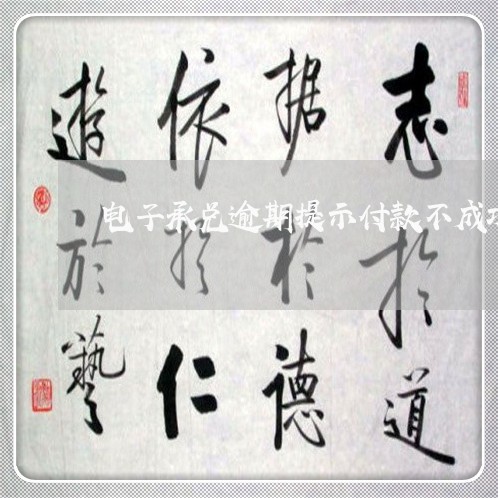 志於道
据於德
依於仁
遊於藝
电子承兑逾期提示付款不成